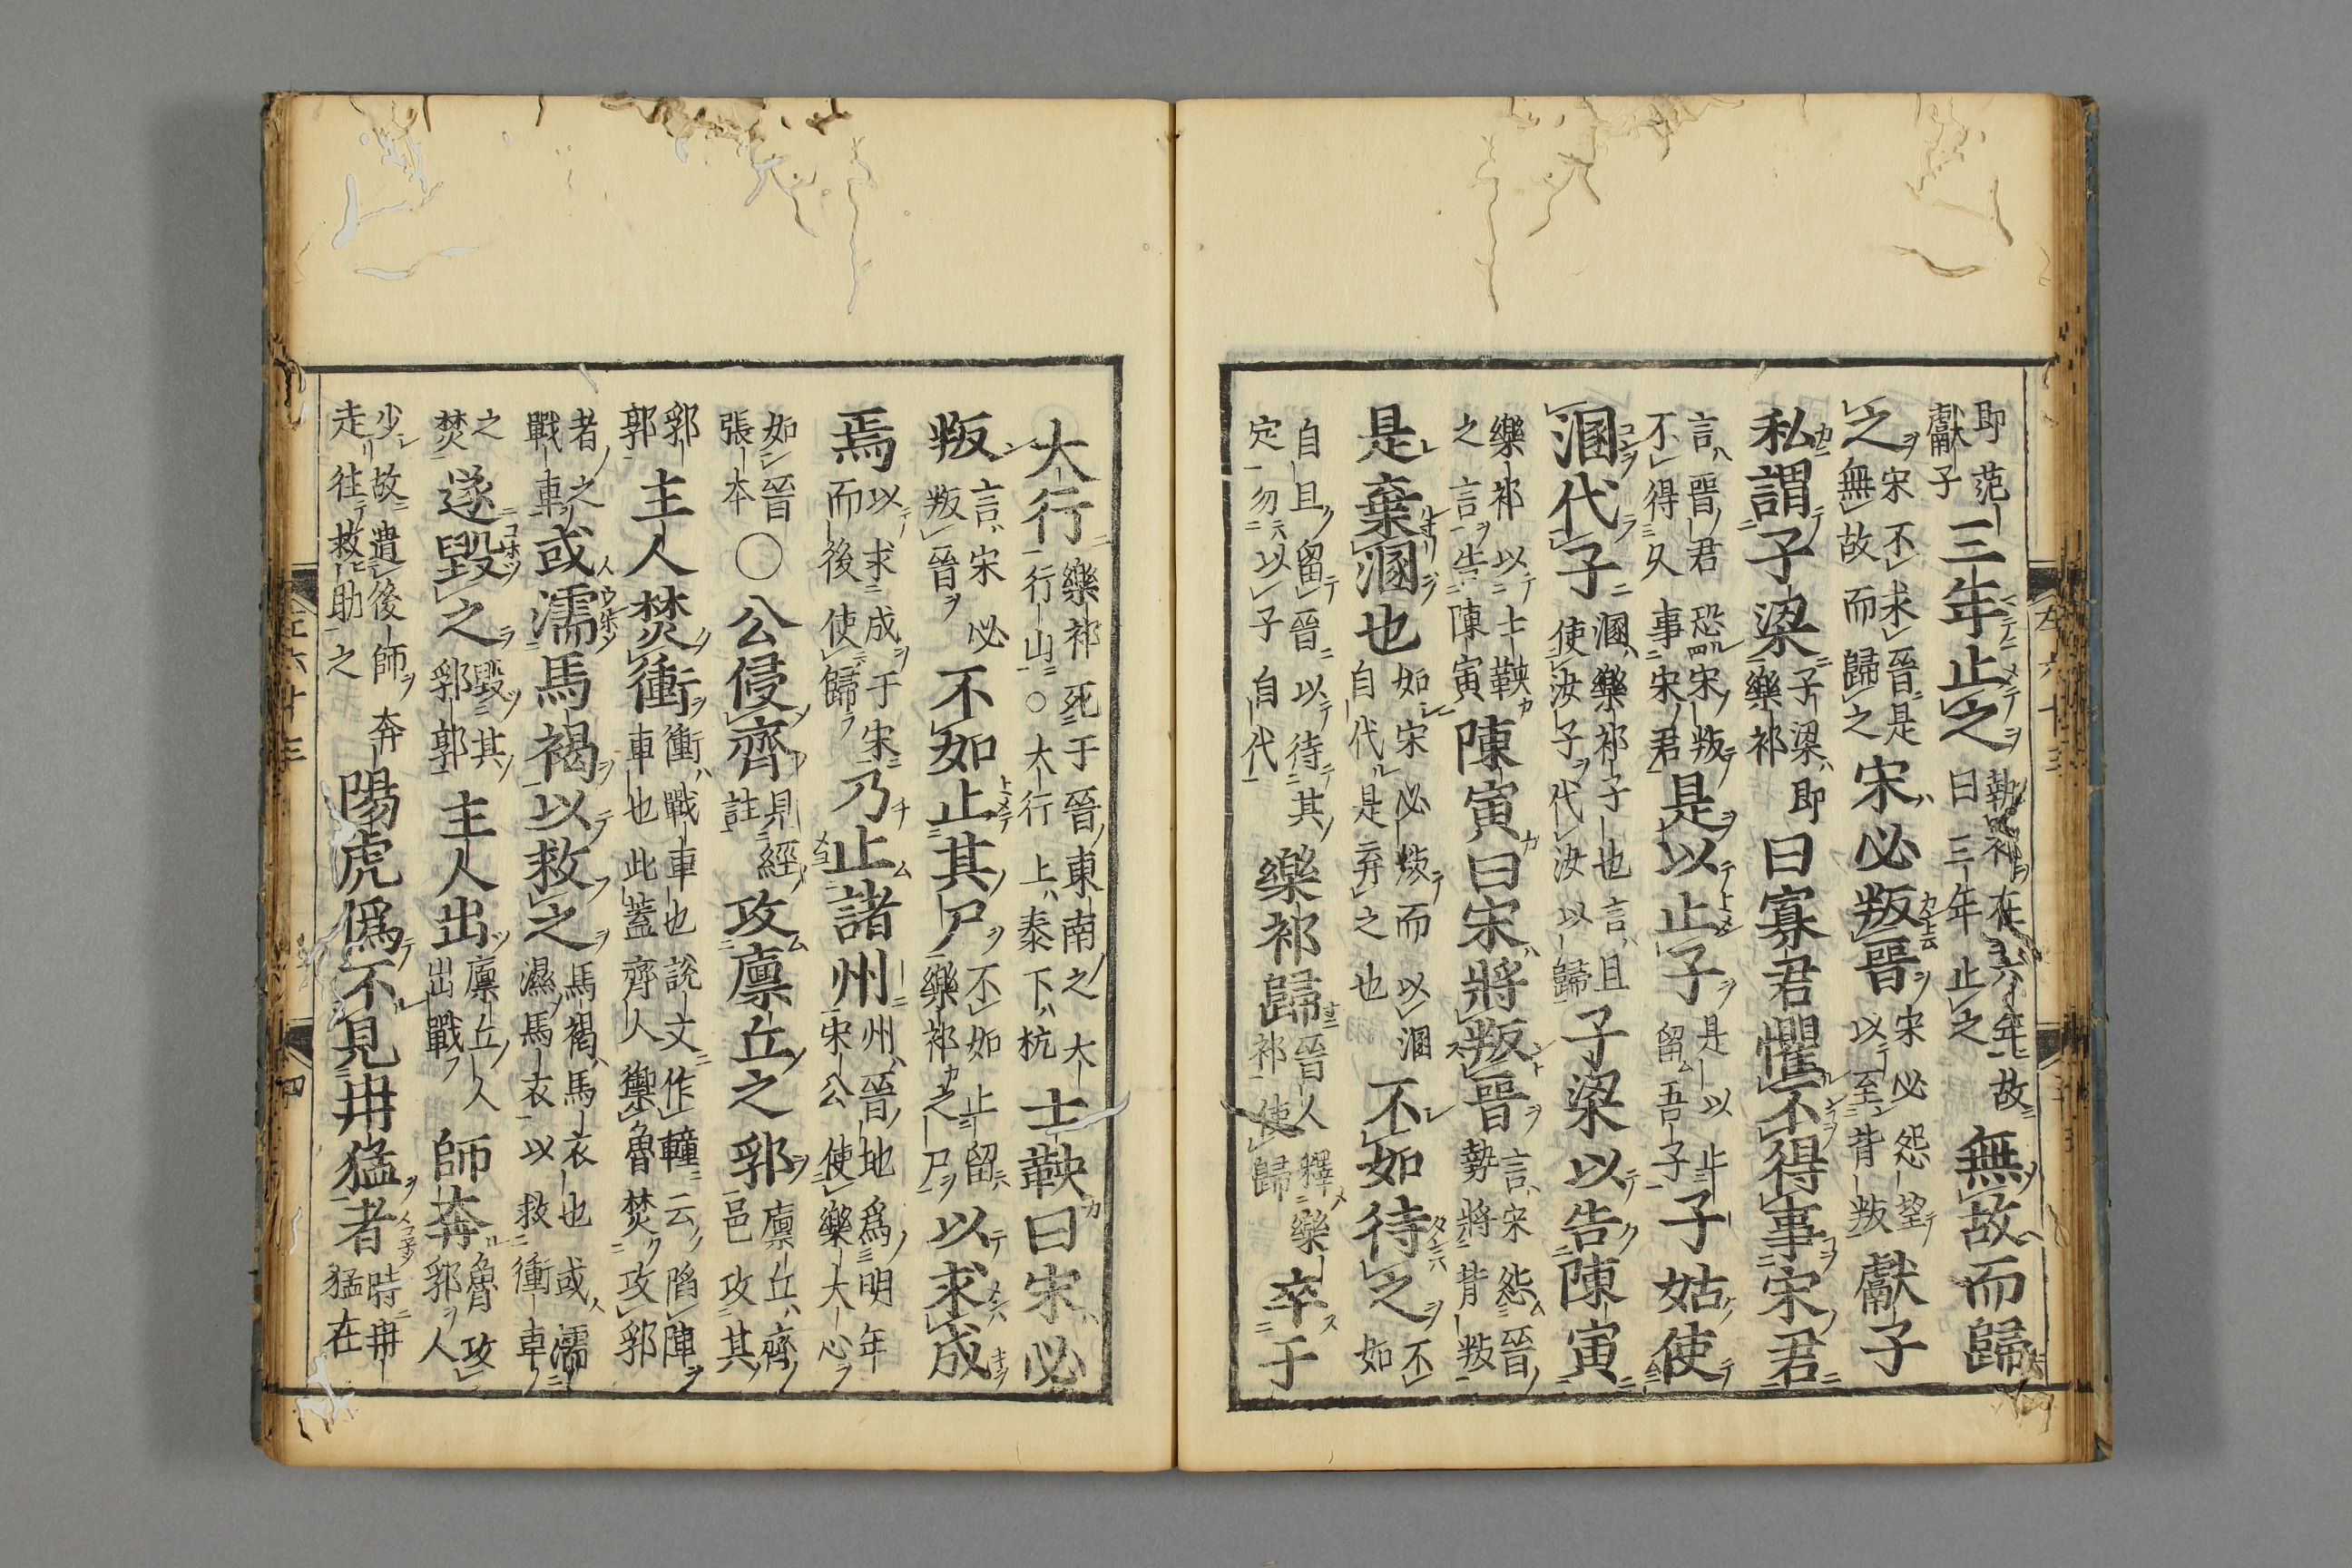 即范獻子三年止之執祁在六年故曰三年止之無故而歸
之宋不求晉是無故而歸之宋必叛晉宋必怨望以至背叛獻子
私謂子梁子梁即樂祁曰寡君懼不得事宋君
言晉君恐宋叛不得久事宋君是以止子是以止留吾子子姑使
溷代子溷樂祁子也言且使汝子代汝以歸子梁以告陳寅
樂祁以士鞅之言告陳寅陳寅曰宋將叛晉言宋怨晉勢將背叛
是棄溷也如宋必叛而以溷自代是弃之也不如待之不如
自且留晉以待其定勿以子自代樂祁歸晉人釋樂祁使歸卒于
大行樂祁死于晉東南之大行山○大行上泰下杭士鞅曰宋必
叛言宋必叛晉不如止其尸不如止留樂祁之尸以求成
焉以求成于宋而後使歸乃止諸州州晉地爲明年宋公使樂大心
如晉張本○公侵齊見經註攻廩丘之郛廩丘齊邑攻其
郛郭主人焚衝衝戰車也說文作轒云陷陣車也此蓋齊人禦魯焚攻郛
者之戰車或濡馬褐以救之馬褐馬衣也或濡濕馬衣以救衝車
之焚遂毀之毀其郛郭主人出廩丘人出戰師奔魯攻郛人
少故遣後師奔走往救助之陽虎僞不見冉猛者時冉猛在